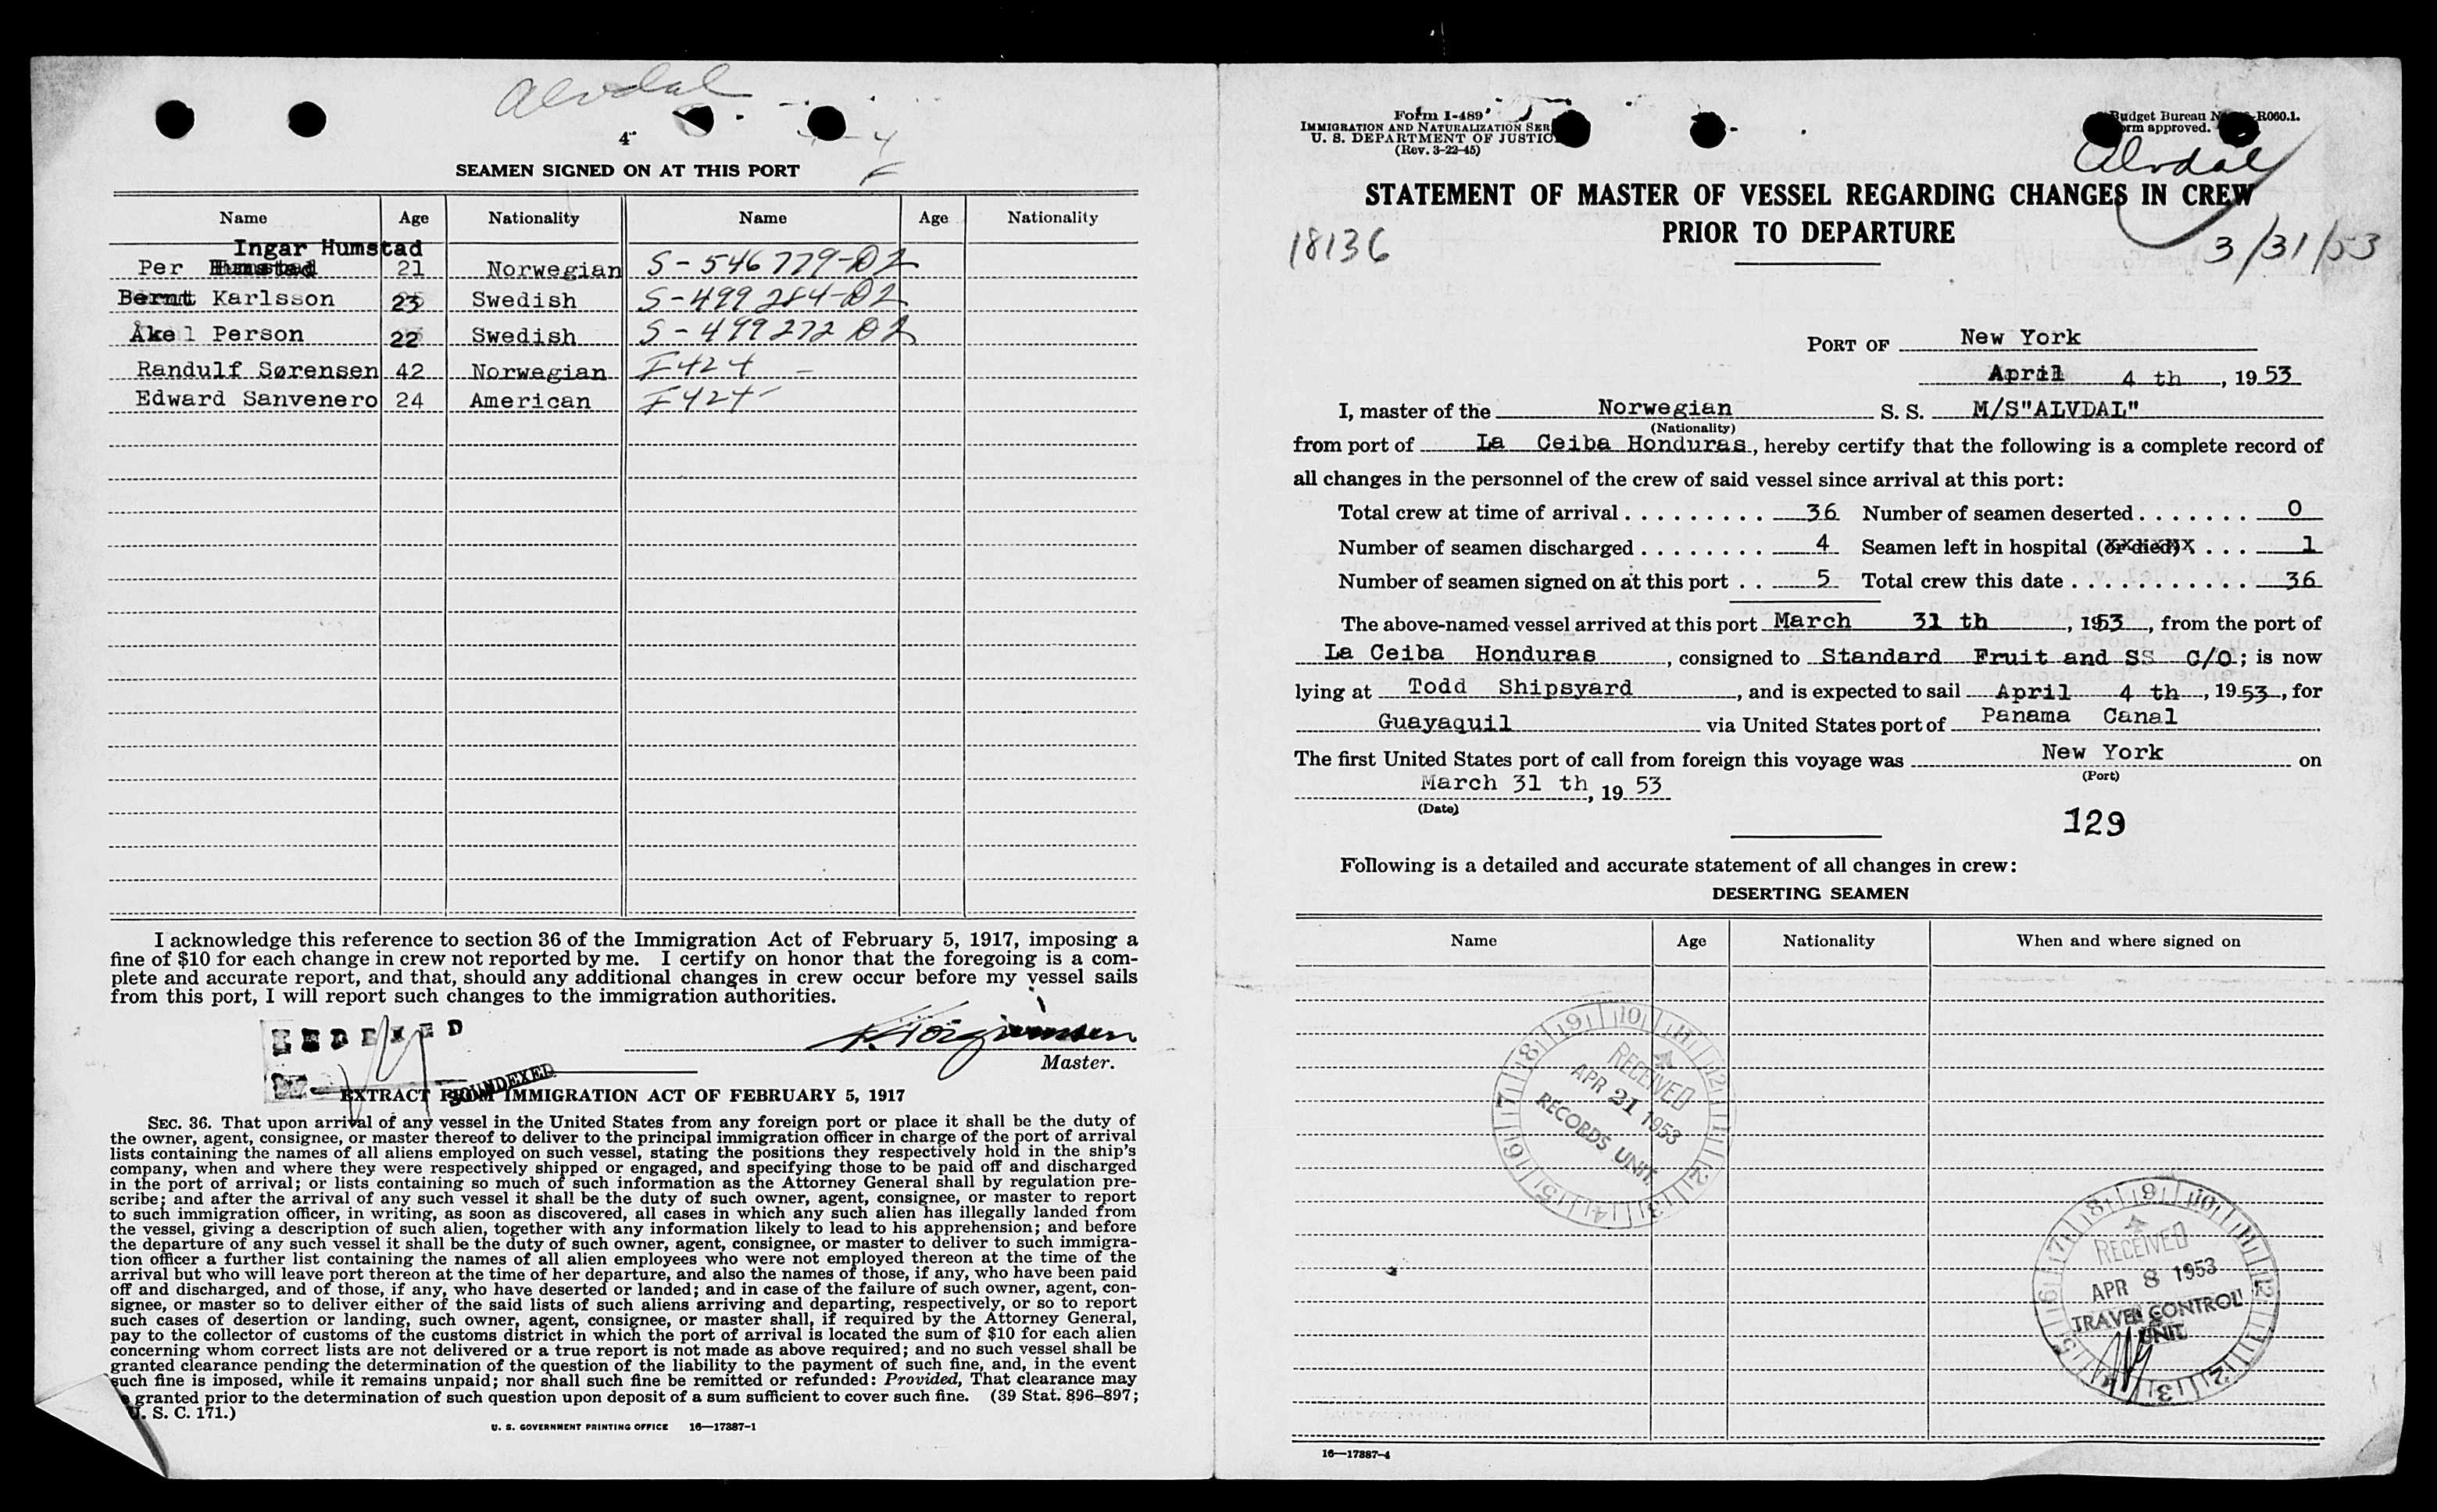 Alvdal
4
SEAMEN SIGNED ON AT THIS PORT
Name Age Nationality Name Age Nationality
Ingar Humstad
Per Humstad 21 Norwegian S-546779-D2
Bernt Karlsson 23 Swedish S-499284-D2
Åke Person 22 Swedish S-499272 D2
Randulf Sørensen 42 Norwegian I424 -
Edward Sanvenero 24 American I424-
I acknowledge this reference to section 36 of the Immigration Act of February 5, 1917, imposing a
fine of $10 for each change in crew not reported by me. I certify on honor that the foregoing is a com-
plete and accurate report, and that, should any additional changes in crew occur before my vessel sails
from this port, I will report such changes to the immigration authorities.
INDEXED
Master.
SOUNDEXED
EXTRACT FROM IMMIGRATION ACT OF FEBRUARY 5, 1917
SEC. 36. That upon arrival of any vessel in the United States from any foreign port or place it shall be the duty of
the owner, agent, consignee, or master thereof to deliver to the principal immigration officer in charge of the port of arrival
lists containing the names of all aliens employed on such vessel, stating the positions they respectively hold in the ship's
company, when and where they were respectively shipped or engaged, and specifying those to be paid off and discharged
in the port of arrival; or lists containing so much of such information as the Attorney General shall by regulation pre-
scribe; and after the arrival of any such vessel it shall be the duty of such owner, agent, consignee, or master to report
to such immigration officer, in writing, as soon as discovered, all cases in which any such alien has illegally landed from
the vessel, giving a description of such alien, together with any information likely to lead to his apprehension; and before
the departure of any such vessel it shall be the duty of such owner, agent, consignee, or master to deliver to such immigra-
tion officer a further list containing the names of all alien employees who were not employed thereon at the time of the
arrival but who will leave port thereon at the time of her departure, and also the names of those, if any, who have been paid
off and discharged, and of those, if any, who have deserted or landed; and in case of the failure of such owner, agent, con-
signee, or master so to deliver either of the said lists of such aliens arriving and departing, respectively, or so to report
such cases of desertion or landing, such owner, agent, consignee, or master shall, if required by the Attorney General,
pay to the collector of customs of the customs district in which the port of arrival is located the sum of $10 for each alien
concerning whom correct lists are not delivered or a true report is not made as above required; and no such vessel shall be
granted clearance pending the determination of the question of the liability to the payment of such fine, and, in the event
such fine is imposed, while it remains unpaid; nor shall such fine be remitted or refunded: Provided, That clearance may
granted prior to the determination of such question upon deposit of a sum sufficient to cover such fine. (39 Stat. 896–897;
U. S. C. 171.)
U. S. GOVERNMENT PRINTING OFFICE 16—17387-1
Form I-489
IMMIGRATION AND NATURALIZATION SER
U. S. DEPARTMENT OF JUSTIC
(Rev. 3-22-45)
Budget Bureau N R060.1.
orm approved.
Alvdal
STATEMENT OF MASTER OF VESSEL REGARDING CHANGES IN CREW
PRIOR TO DEPARTURE
18136
3/31/53
PORT OF New York
April 4 th, 1953
I, master of the Norwegian S. S. M/S"ALVDAL"
(Nationality)
from port of La Ceiba Honduras, hereby certify that the following is a complete record of
all changes in the personnel of the crew of said vessel since arrival at this port:
Total crew at time of arrival 36 Number of seamen deserted 0
Number of seamen discharged 4 Seamen left in hospital (or died) 1
Number of seamen signed on at this port 5 Total crew this date 36
The above-named vessel arrived at this port March 31 th, 1953, from the port of
La Ceiba Honduras, consigned to Standard Fruit and SS C/O; is now
lying at Todd Shipsyard, and is expected to sail April 4 th, 1953, for
Guayaquil via United States port of Panama Canal
The first United States port of call from foreign this voyage was New York on
(Port)
March 31 th, 19 53
(Date)
129
Following is a detailed and accurate statement of all changes in crew:
DESERTING SEAMEN
Name Age Nationality When and where signed on
RECEIVED
APR 21 1953
RECORDS UNIT
RECEIVED
APR 8 1953
TRAVEL CONTROL
UNIT
16—17387-4